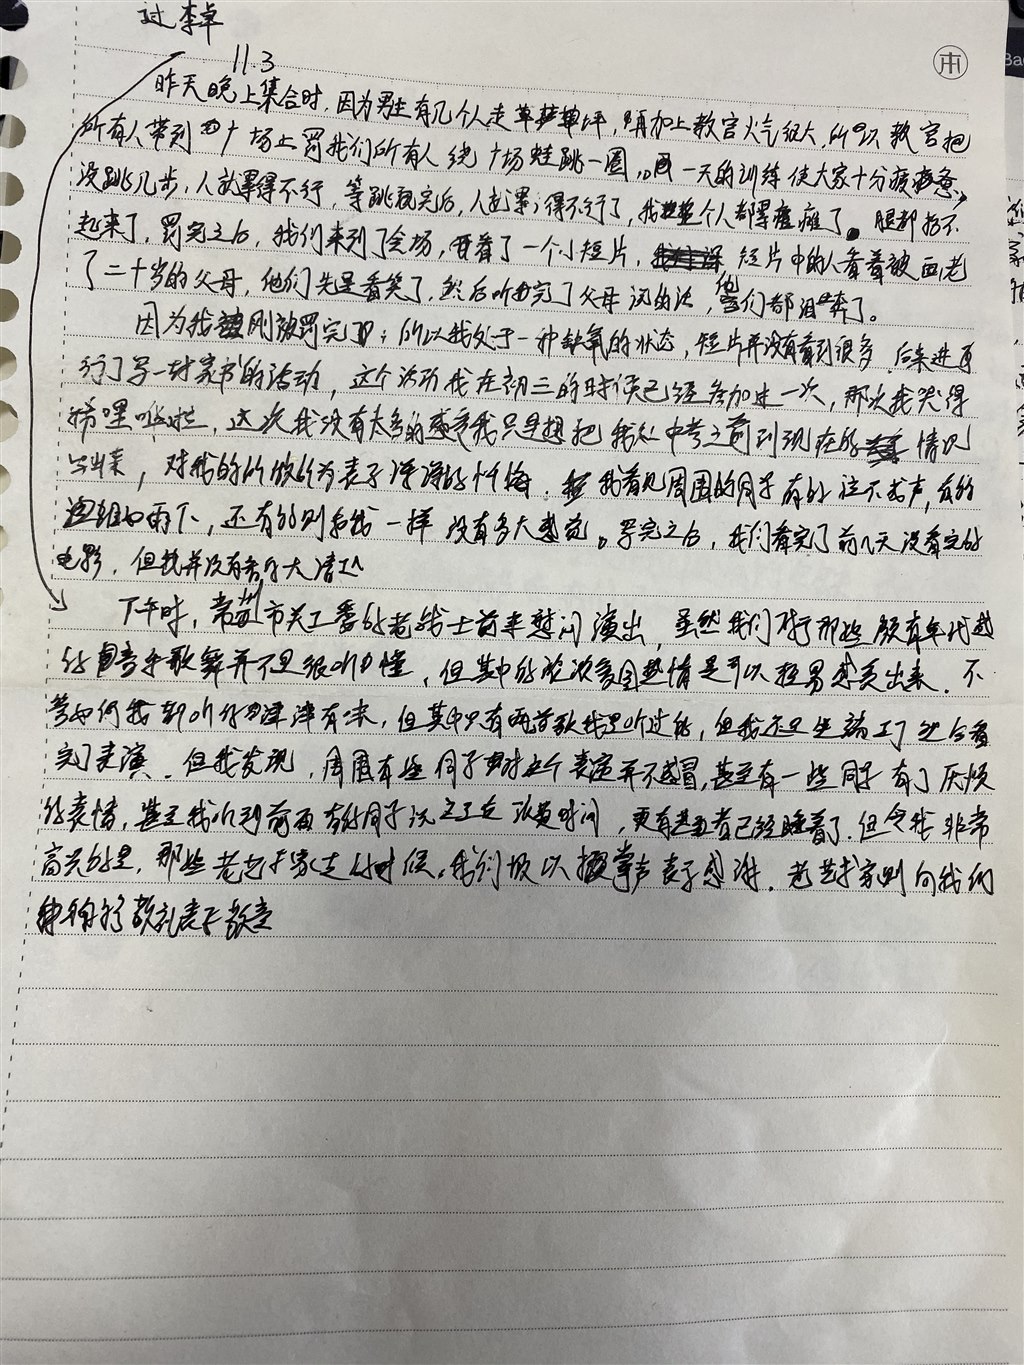 过李卓
11.3
昨天晚上集合时,因为男生有几个人走草坪,再加上教官火气很大,所以教官把
所有人带到广场上罚我们所有人绕广场蛙跳一圈。一天的训练使大家十分疲惫,
没跳几步,人就累得不行,等跳完后,人都累得不行了,我整个人都瘫了。腿都抬不
起来了。罚完之后,我们来到了会场,看了一个小短片,短片中的人看着被画老
了二十岁的父母,他们先是看笑了,然后听完了父母说的话,他们都泪奔了。
因为我刚被罚完了,所以我处于一种缺氧的状态,短片并没有看到很多。后来进
行了写一封家书的活动,这个活动我在初三的时候已经参加过一次,那次我哭得
稀哩哗啦,这次我没有太多的感觉我只是想把我从中考之前到现在的情况
写出来,对我的所做所为表示深深的忏悔。我看见周围的同学有的泣不成声,有的
泪如雨下,还有的则和我一样没有多大感觉。写完之后,我们看完了前几天没看完的
电影,但我并没有看多大清
下午时,常州市关工委的老战士前来慰问演出,虽然我们对于那些颇有年代感
的音乐歌舞并不是很听懂,但其中的热情是可以轻易感受出来。不
管如何我都听得津津有味,但其中只有两首歌我是听过的,但我还是坐端正了
完了表演。但我发现,周围有些同学对这个表演并不感冒,甚至有一些同学有了厌烦
的表情,甚至我听到前面有的同学说这是在浪费时间,更有甚者已经睡着了。但令我非常
高兴的是,那些老艺术家走的时候,我们报以掌声表示感谢。老艺术家则向我们
敬礼表示敬意